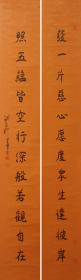 發一片慈心愿度眾生達彼岸
照五蘊皆空行深般若觀自在